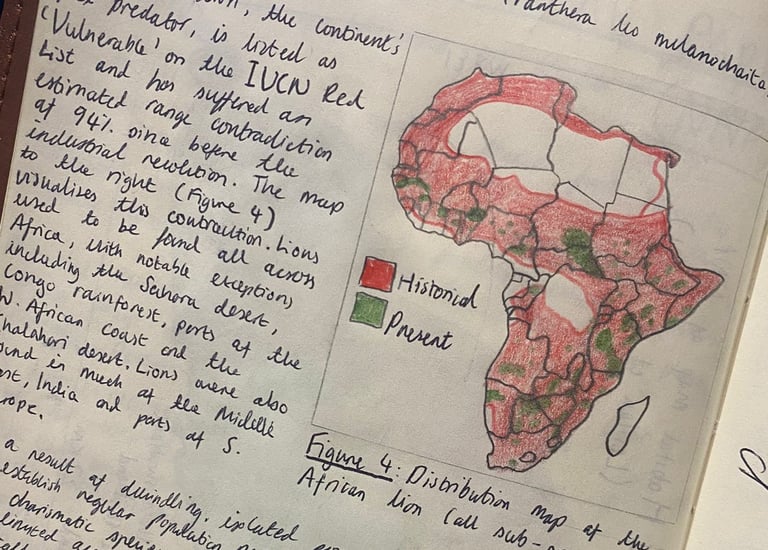 the continent's
predator, is listed as
'Vulnerable' on the IUCN Red
List and has suffered an
estimated range contradiction
at 94% since before the
industrial revolution. The map
to the right (Figure 4)
visualizes this contraction. Lions
used to be found all across
Africa, with notable exceptions
including the Sahara desert,
Congo rainforest, parts of the
W. African coast and the
Kalahari desert. Lions were also
found in much of the Middle
East, India and parts of S.
a result of dwindling, isolated
establish regular population
charismatic species
(Panthera leo melanochaita
Historical
Present
Figure 4: Distribution map of the
African lion (all sub-